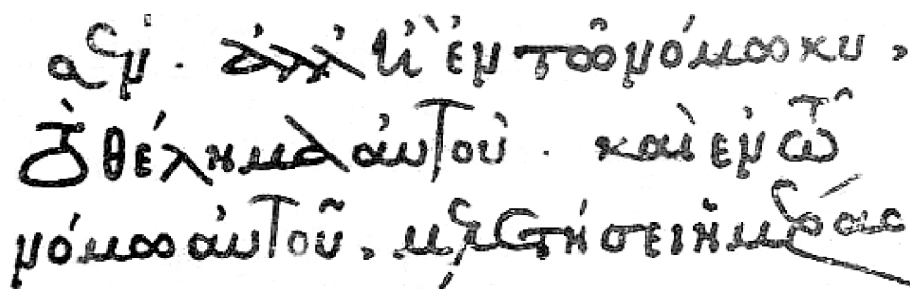 ἀλλ' ἢ ἐν τῶ νόμω κυ,
τὸ θέλημα αὐτοῦ · καὶ ἐν τῶ
νόμω αὐτοῦ, μελετήσει ἡμέρας